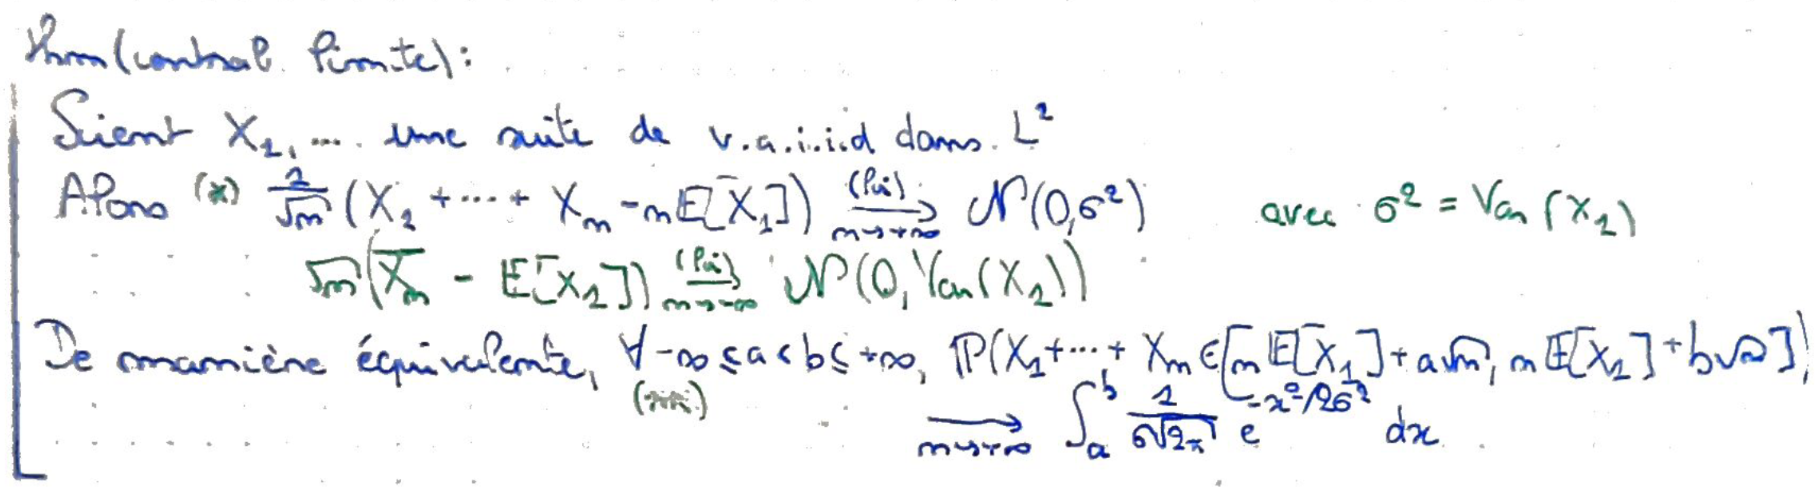 Thm (central limite):
Soient X₁, ... une suite de v.a.i.i.d dans L²
Alors (*) 1/√n (X₁ + ... + Xₙ - nE[X₁]) →(loi) n→+∞ N(0,σ²) avec σ² = Var(X₁)
√n(X̄ₙ - E[X₁]) →(loi) n→+∞ N(0, Var(X₁))
De manière équivalente, ∀ -∞ ≤ a < b ≤ +∞, P(X₁ + ... + Xₙ ∈ [nE[X₁] + a√n, nE[X₁] + b√n])
(**) → n→+∞ ∫ₐᵇ 1/(σ√2π) e^(-x²/2σ²) dx